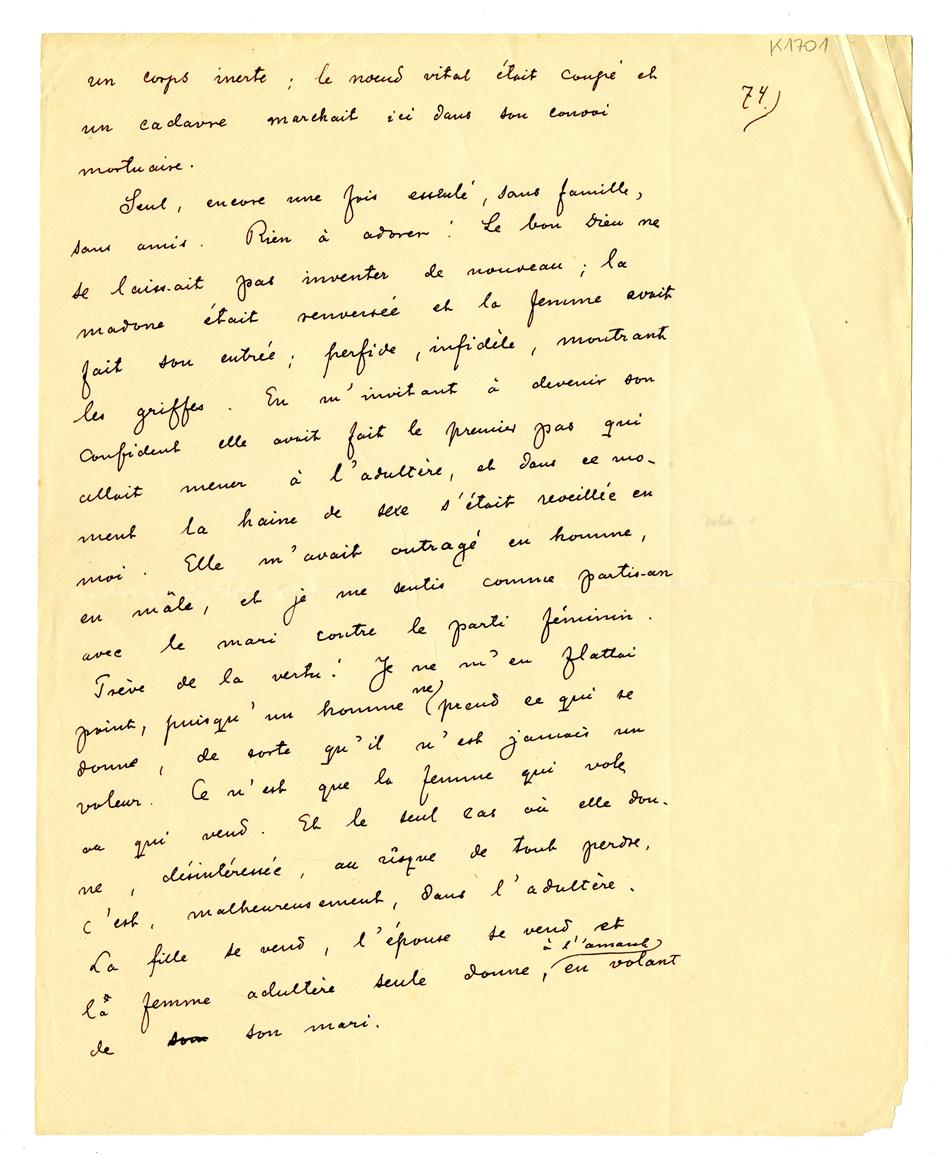 K1701
74.)
un corps inerte ; le nœud vital était coupé et
un cadavre marchait ici dans son convoi
mortuaire.
Seul, encore une fois esseulé, sans famille,
sans amis. Rien à adorer ! Le bon Dieu ne
se laissait pas inventer de nouveau ; la
madone était renversée et la femme avait
fait son entrée ; perfide, infidèle, montrant
les griffes. En m'invitant à devenir son
confident elle avait fait le premier pas qui
allait mener à l'adultère, et dans ce mo-
ment la haine de sexe s'était reveillée en
moi. Elle m'avait outragé en homme,
en mâle, et je me sentis comme partisan
avec le mari contre le parti féminin.
Trève de la vertu ! Je ne m'en flattai
point, puisqu'un homme ne prend ce qui se
donne, de sorte qu'il n'est jamais un
voleur. Ce n'est que la femme qui vole
ou qui vend. Et le seul cas où elle don-
ne, désintéressée, au risque de tout perdre,
c'est, malheureusement, dans l'adultère.
La fille se vend, l'épouse se vend et
la femme adultère seule donne, à l'amant en volant
de son mari.